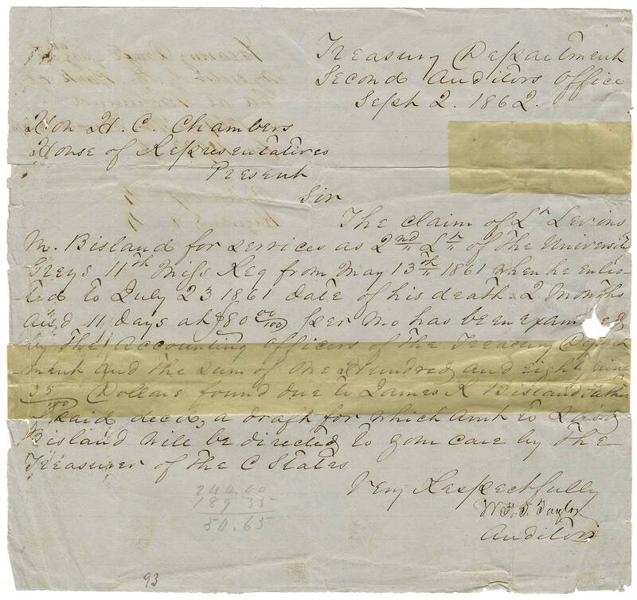 Treasury Department
Second Auditors Office
Sept 2. 1862.
Hon H. C. Chambers
House of Representatives
Present
Sir
The claim of Lt Levens
M. Bisland for services as 2nd Lt of the University
Greys 11th Miss Reg from May 13th 1861 when he enlis-
ted to July 23 1861 date of his death 2 months
and 11 days at $80 00/100 per mo has been examined
by the Accounting officers of the Treasury Depart
ment and the sum of One Hundred and eighty nine
35/100 Dollars found due to James K Bisland father
said decd, a draft for which amt to
Bisland will be directed to your care by the
Treasurer of the C States
Very Respectfully
W. H. S. Taylor
Auditor
244.00
189 35
50.65
93